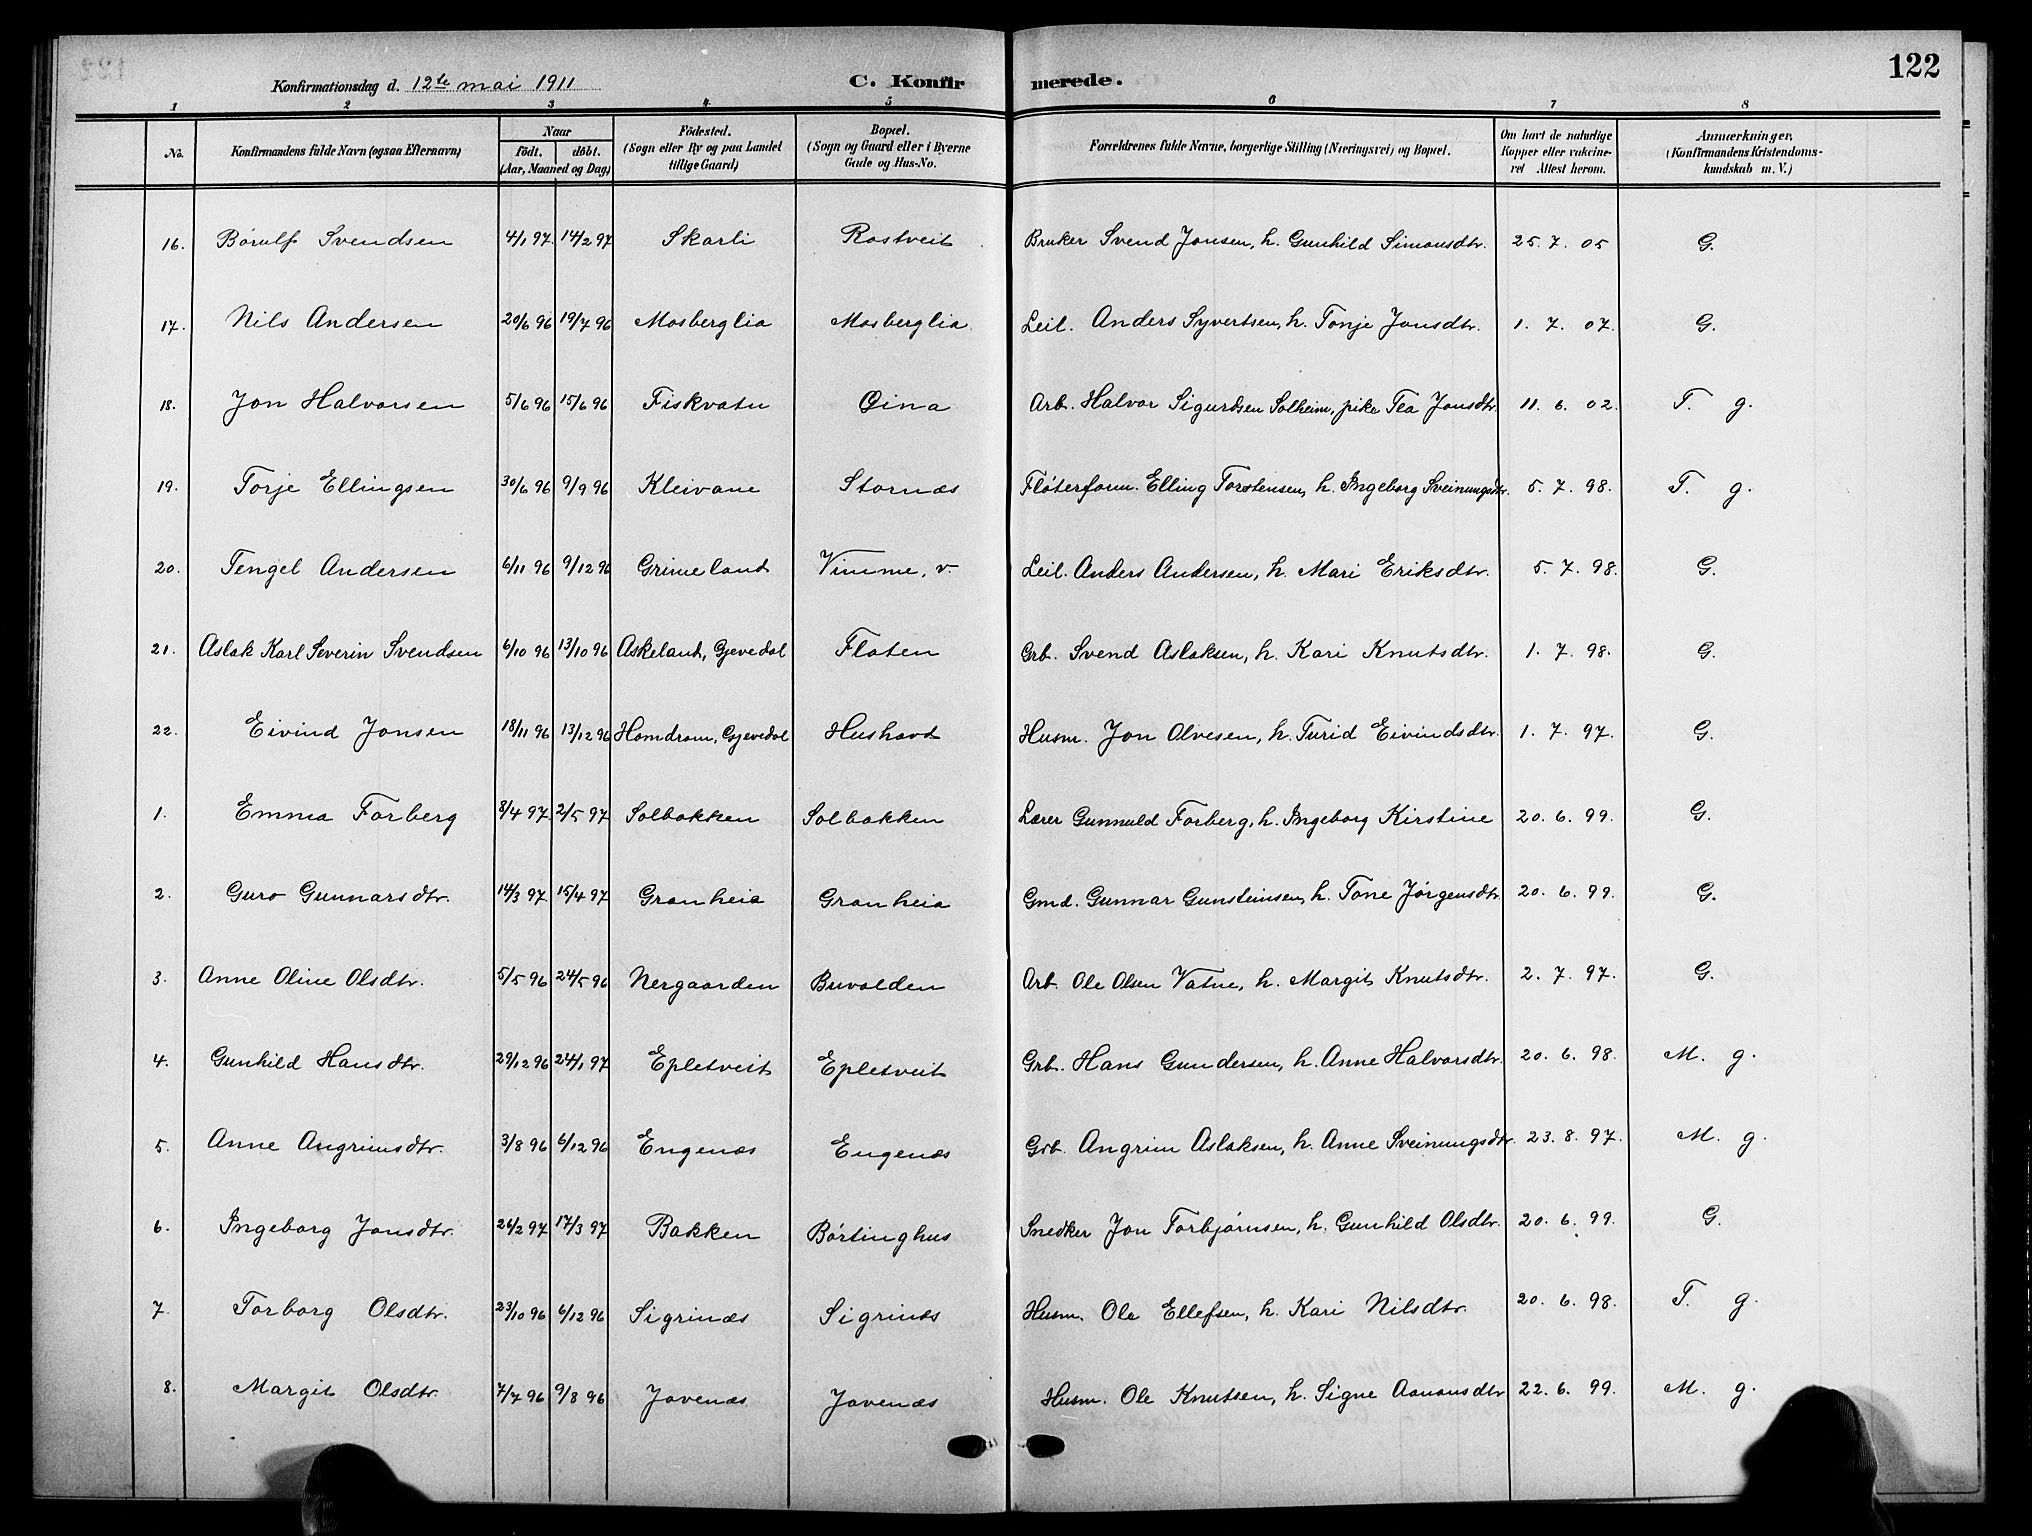 122
Konfirmationsdag d. 12te mai 1911 C. Konfirmerede.
1 2 3 4 5 6 7 8
No. Konfirmandens fulde Navn (ogsaa Efternavn) Naar födt. döbt. (Aar, Maaned og Dag) Födested. (Sogn eller By og paa Landet tillige Gaard) Bopæl. (Sogn og Gaard eller i Byerne Gade og Hus-No. Forældrenes fulde Navne, borgerlige Stilling (Næringsvei) og Bopæl. Om havt de naturlige Kopper eller vakcineret Attest herom. Anmærkninger. (Konfirmandens Kristendomskundskab m. V.)
16. Börulf Svendsen 4/1 97 14/2 97 Skarli Rostveit Bruker Svend Jonsen, h. Gunhild Simonsdtr. 25. 7. 05 G.
17. Nils Andersen 20/6 96 19/7 96 Mosberglia Mosberglia Leil. Anders Syvertsen, h. Tonje Jonsdtr. 1. 7. 07. G.
18. Jon Halvorsen 5/6 96 15/6 96 Fiskvatn Oina Arb. Halvor Sigurdsen Solheim, pike Tea Jonsdtr. 11. 6. 02. T. g.
19. Torje Ellingsen 30/6 96 9/9 96 Kleivane Stornæs Fløterform. Elling Torstensen, h. Ingeborg Sveinungsdtr. 5. 7. 98. T. g.
20. Tengel Andersen 6/11 96 9/12 96 Grimeland Vimme, v. Leil. Anders Andersen, h. Mari Eriksdtr. 5. 7. 98. G.
21. Aslak Karl Severin Svendsen 6/10 96 13/10 96 Askeland, Gjevedal Flaten Grb. Svend Aslaksen, h. Kari Knutsdtr. 1. 7. 98. G.
22. Eivind Jonsen 18/11 96 13/12 96 Homdrom, Gjevedal Hushovd Husm. Jon Olvesen, h. Turid Eivindsdtr. 1. 7. 97. G.
1. Emma Forberg 8/4 97 2/5 97 Solbakken Solbakken Lærer Gunnuld Forberg, h. Ingeborg Kirstine 20. 6. 99. G.
2. Guro Gunnarsdtr. 14/3 97 15/4 97 Granheia Granheia Gmd. Gunnar Gunsteinsen, h. Tone Jørgensdtr. 20. 6. 99. G.
3. Anne Oline Olsdtr. 5/5 96 24/5 96 Nergaarden Buvolden Arb. Ole Olsen Vatne, h. Margit Knutsdtr. 2. 7. 97. G.
4. Gunhild Hansdtr. 29/12 96 24/1 97 Epletveit Epletveit Grb. Hans Gundersen, h. Anne Halvorsdtr. 20. 6. 98. M. g.
5. Anne Angrimsdtr. 3/8 96 6/12 96 Engenæs Engenæs Grb. Angrim Aslaksen, h. Anne Sveinungsdtr. 23. 8. 97. M. g.
6. Ingeborg Jonsdtr. 26/2 97 17/3 97 Bakken Børtinghus Snedker Jon Torbjørnsen, h. Gunhild Olsdtr. 20. 6. 99. G.
7. Torborg Olsdtr. 23/10 96 6/12 96 Sigrinæs Sigrinæs Husm. Ole Ellefsen, h. Kari Nilsdtr. 20. 6. 98. T. g.
8. Margit Olsdtr. 7/7 96 9/8 96 Jovenæs Jovenæs Husm. Ole Knutsen, h. Signe Aanonsdtr 22. 6. 99. M. g.